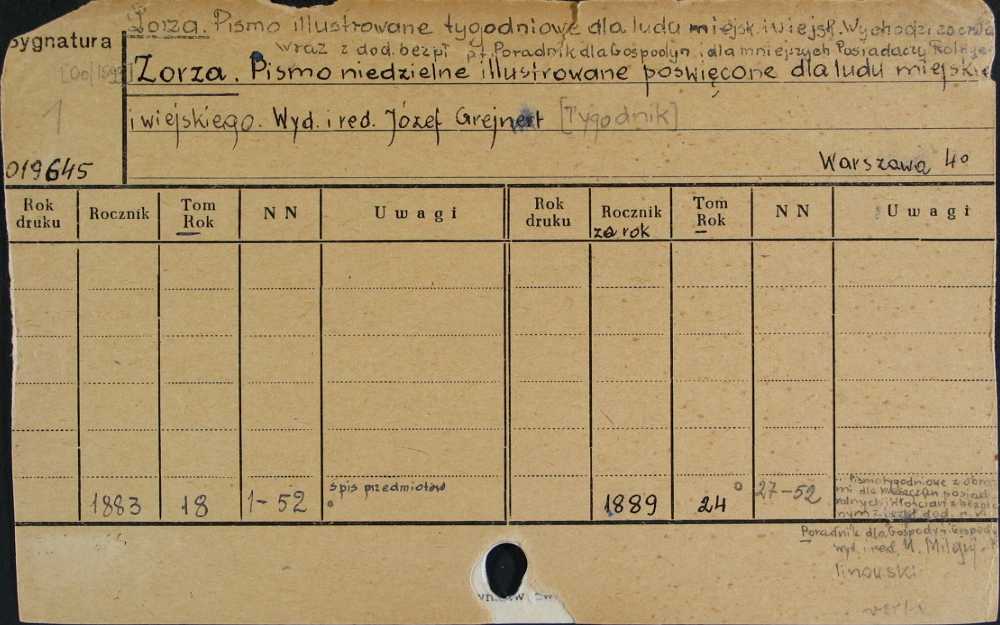 Zorza. Pismo illustrowane tygodniowe dla ludu miejsk. i wiejsk. Wychodzi
wraz z dod. bezpł. pt. Poradnik dla Gospodyń i dla mniejszych Posiadaczy
Sygnatura
Zorza. Pismo niedzielne illustrowane poswięcone dla ludu miejskie
1
i wiejskiego. Wyd. i red. Józef Grejnert [Tygodnik]
019645
Warszawa 4º
Rok druku Rocznik Tom Rok NN Uwagi Rok druku Rocznik za rok Tom Rok NN Uwagi
1883 18 1-52 spis przedmiotów
1889 24 27-52 Pismo tygodniowe z
dla
Poradnik dla Gospodyń
wyd. i red. M.
linowski
verte